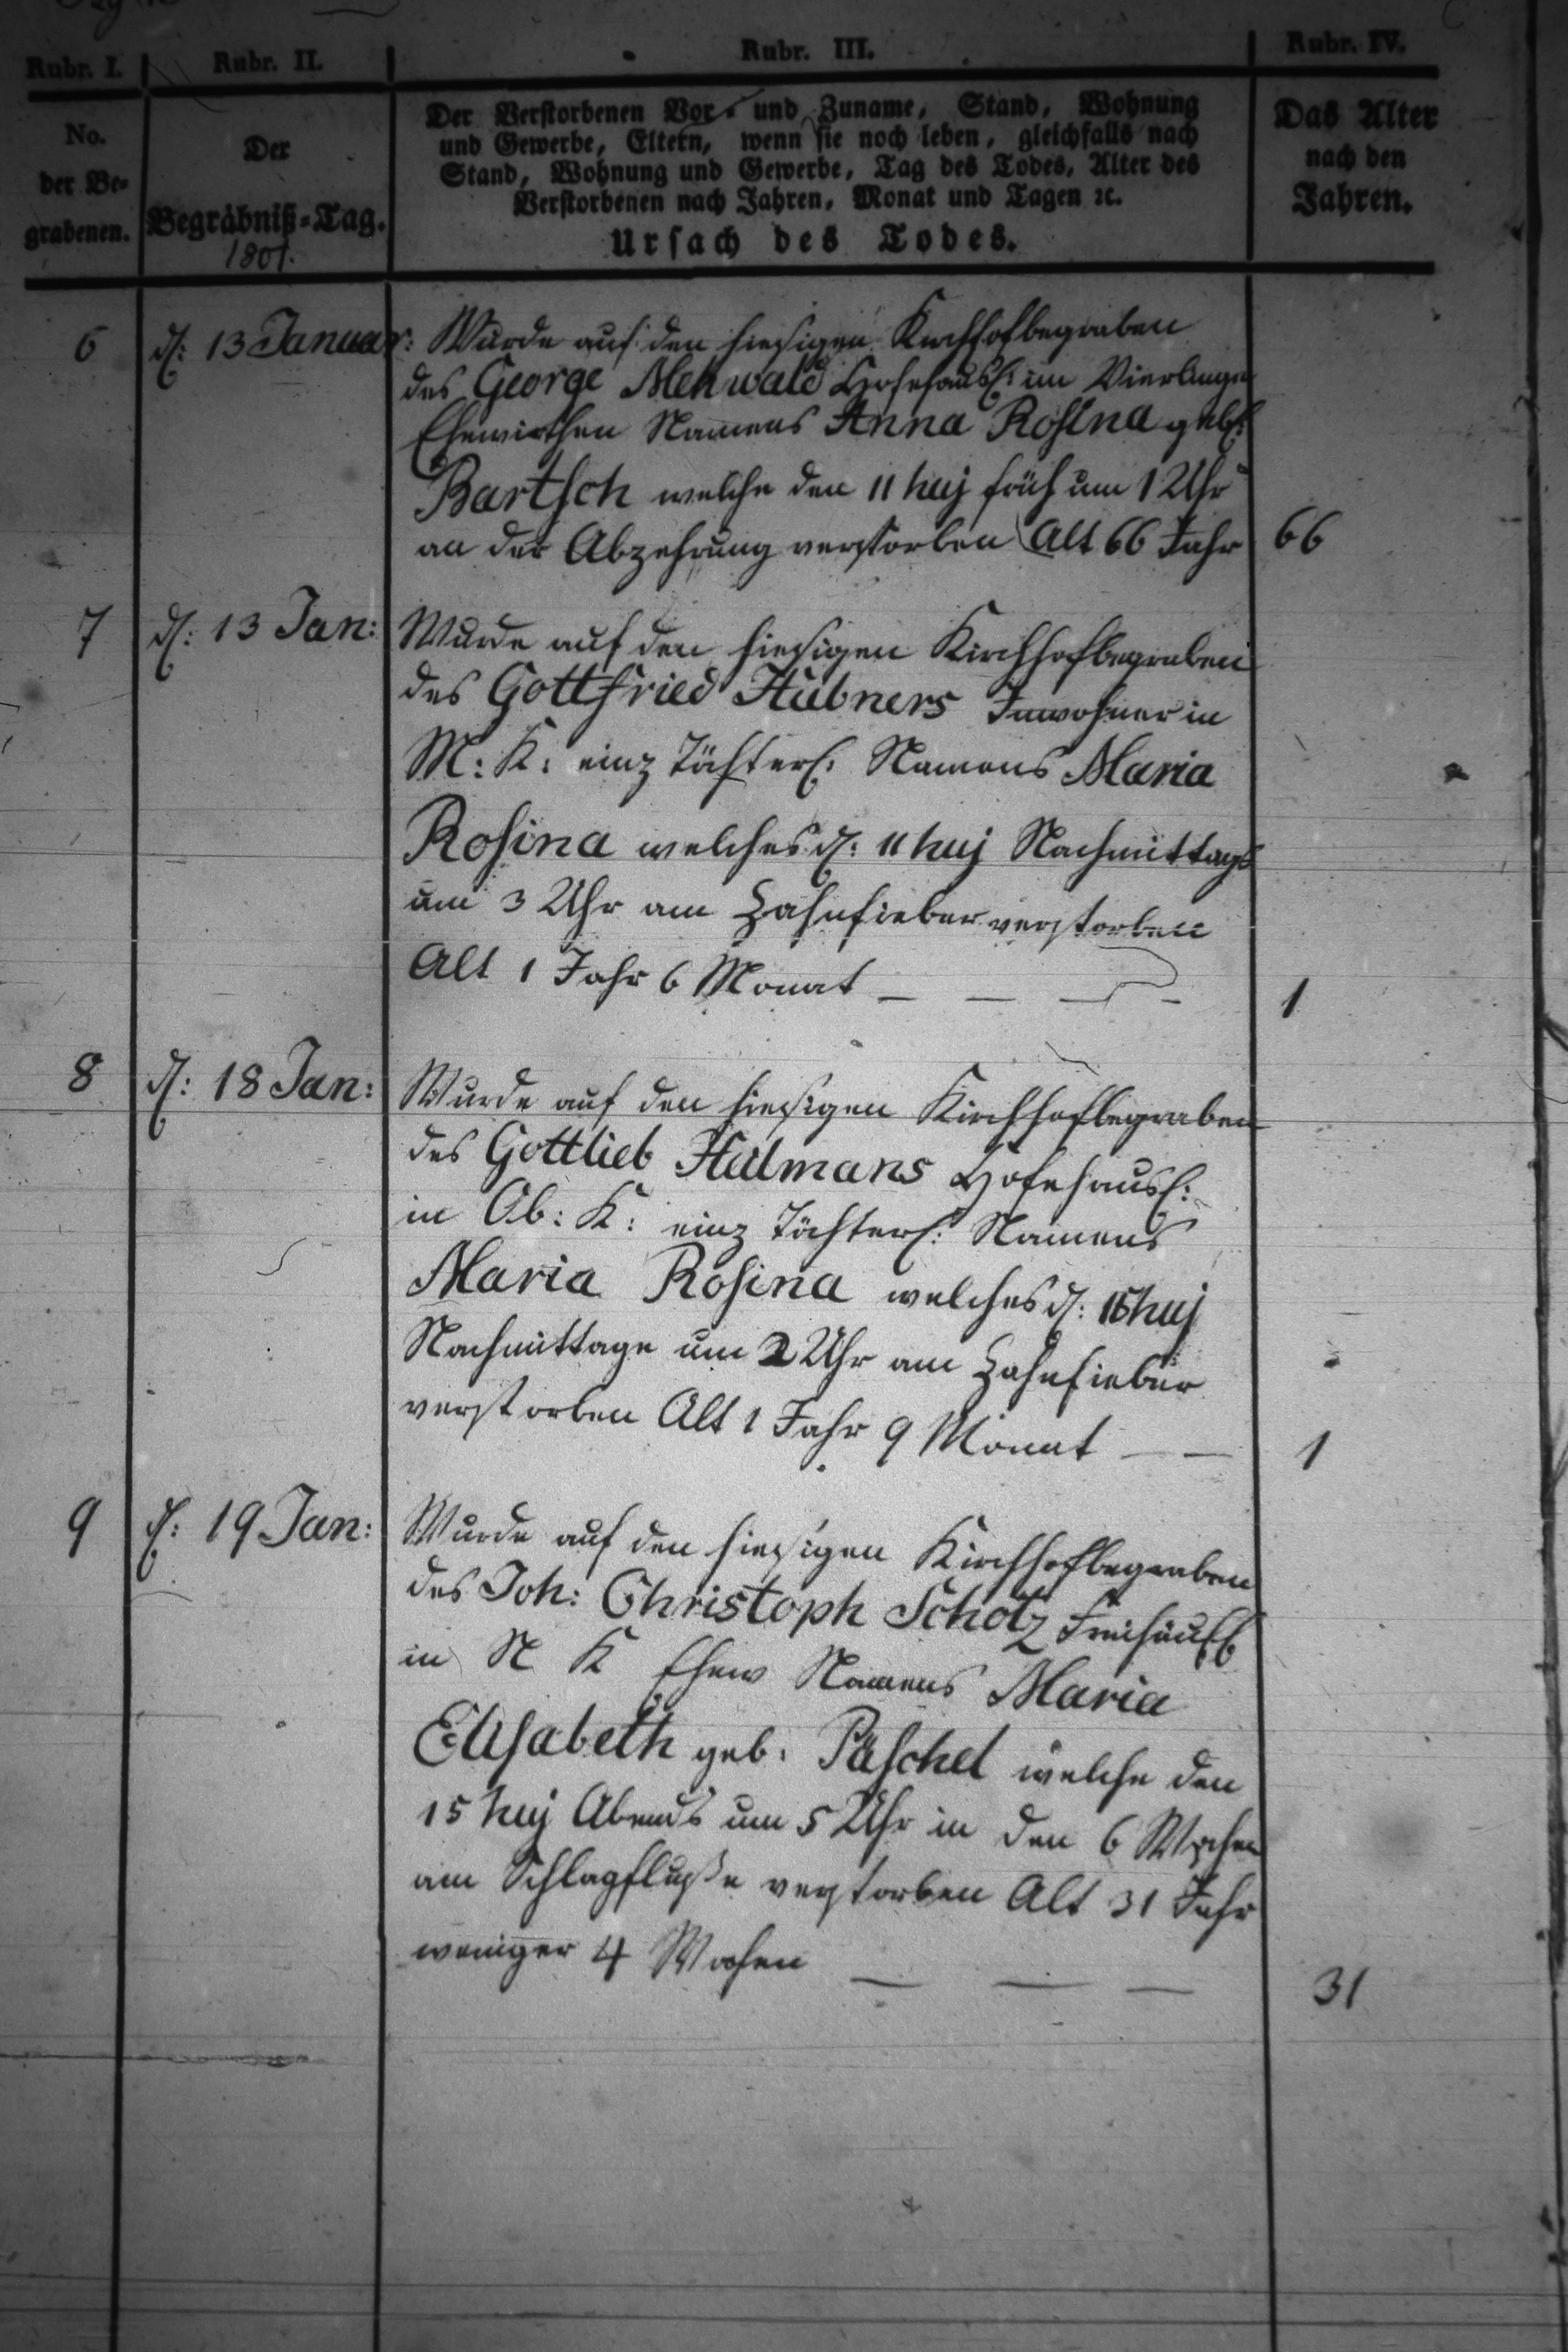 Rubr. I.
Rubr. II.
Rubr. III.
Rubr. IV.
No.
der Be-
grabenen.
Der
Begräbniß-Tag.
1801.
Der Verstorbenen Vor- und Zuname, Stand, Wohnung
und Gewerbe, Eltern, wenn sie noch leben, gleichfalls nach
Stand, Wohnung und Gewerbe, Tag des Todes, Alter des
Verstorbenen nach Jahren, Monat und Tagen ꝛc.
Ursach des Todes.
Das Alter
nach den
Jahren.
6 d: 13 Januar: Wurde auf den hiesigen Kirchhof begraben
des George Mehwald Hofehäusl: im
Ehewirthen Namens Anna Rosina geb:
Bartsch welche den 11 huj früh um 1 Uhr
an der Abzehrung verstorben Alt 66 Jahr 66
7 d: 13 Jan: Wurde auf den hiesigen Kirchhof begraben
des Gottfried Hübners Inwohner in
M: K: einz Töchterl: Namens Maria
Rosina welches d: 11 huj Nachmittags
um 3 Uhr am Zahnfieber verstorben
Alt 1 Jahr 6 Monat — — — 1
8 d: 18 Jan: Wurde auf den hiesigen Kirchhof begraben
des Gottlieb Hofehäusl:
in Ob: K: einz Töchterl: Namens
Maria Rosina welches d: huj
Nachmittage um 2 Uhr am Zahnfieber
verstorben Alt 1 Jahr 9 Monat — — 1
9 d: 19 Jan: Wurde auf den hiesigen Kirchhof begraben
des Joh: Christoph Scholz Freihäusl
in N K Ehew Namens Maria
Elisabeth geb: Päschel welche den
15 huj Abends um 5 Uhr in den 6 Wochen
am Schlagfluße verstorben Alt 31 Jahr
weniger 4 Wochen — — — 31